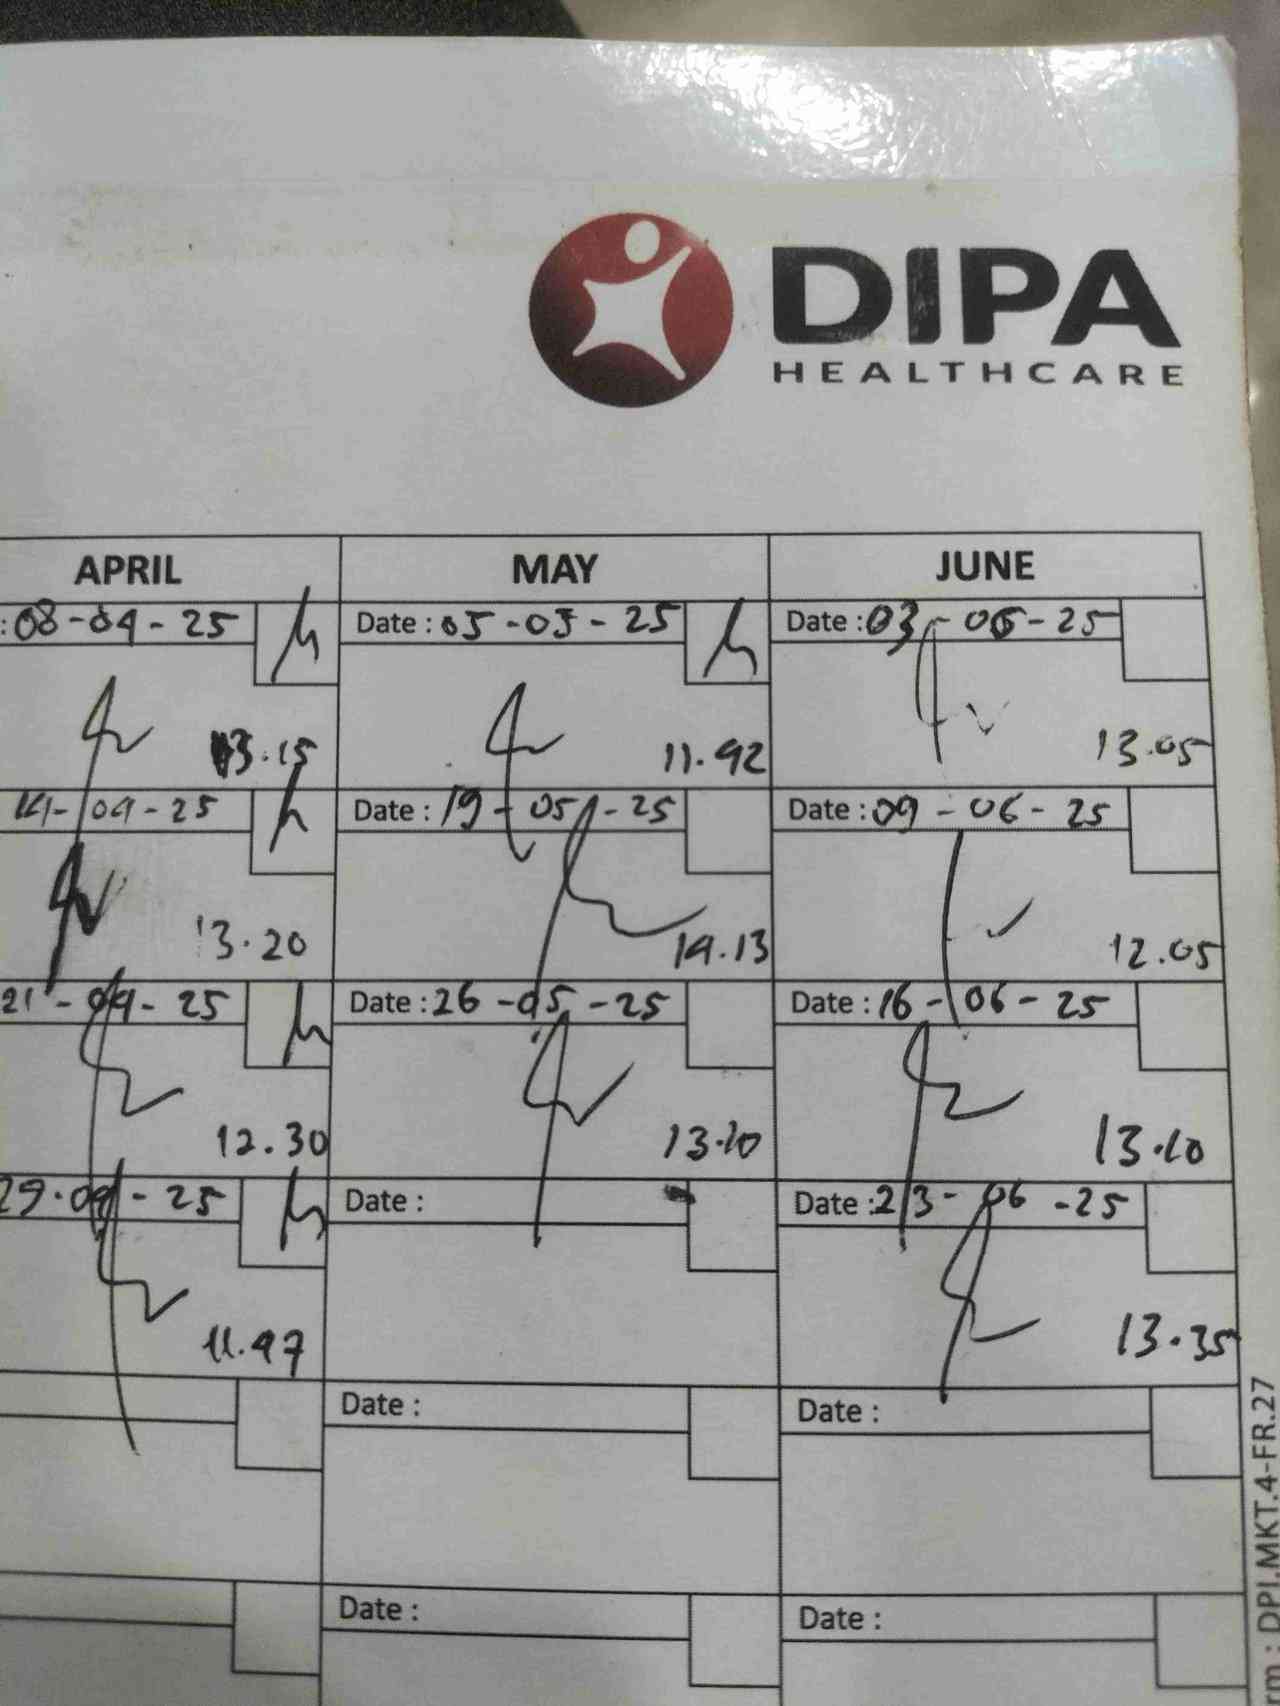 DIPA
HEALTHCARE
APRIL MAY JUNE
: 08-04-25 Date : 05-05-25 Date : 03-06-25
13.15 11.42 13.05
14-04-25 Date : 19-05-25 Date : 09-06-25
13.20 14.13 12.05
21-04-25 Date : 26-05-25 Date : 16-06-25
12.30 13.10 13.10
29.04-25 Date : Date : 23-06-25
11.47 13.35
Date : Date :
Date : Date :
rm : DPI.MKT.4-FR.27